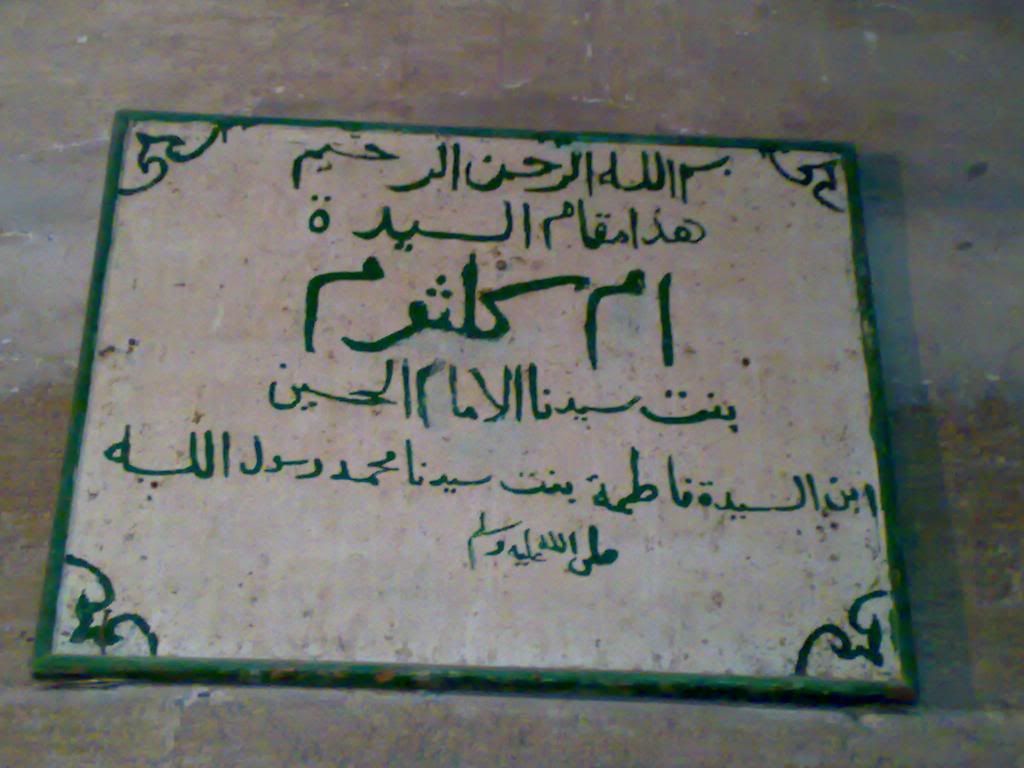 بسم الله الرحمن الرحيم
هذا مقام السيدة
ام كلثوم
بنت سيدنا الامام الحسين
ابن السيدة فاطمة بنت سيدنا محمد رسول الله
صلى الله عليه وسلم